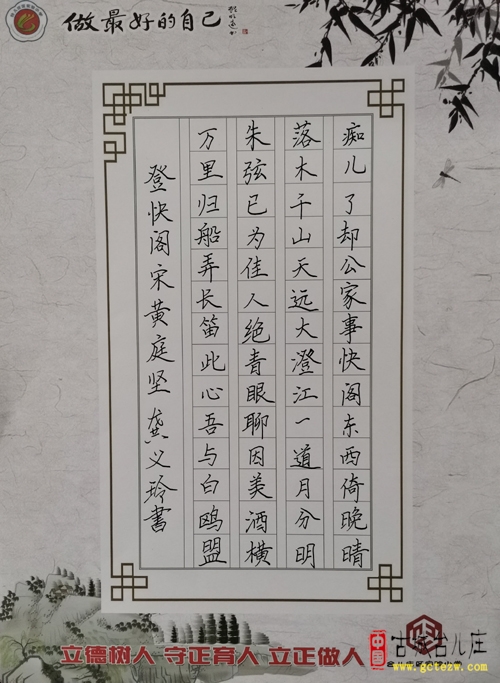 做最好的自己
痴儿了却公家事快阁东西倚晚晴
落木千山天远大澄江一道月分明
朱弦已为佳人绝青眼聊因美酒横
万里归船弄长笛此心吾与白鸥盟
登快阁宋黄庭坚 龚义玲书
立德树人 守正育人 立正做人
中国
古城台儿庄
www.gctezw.com